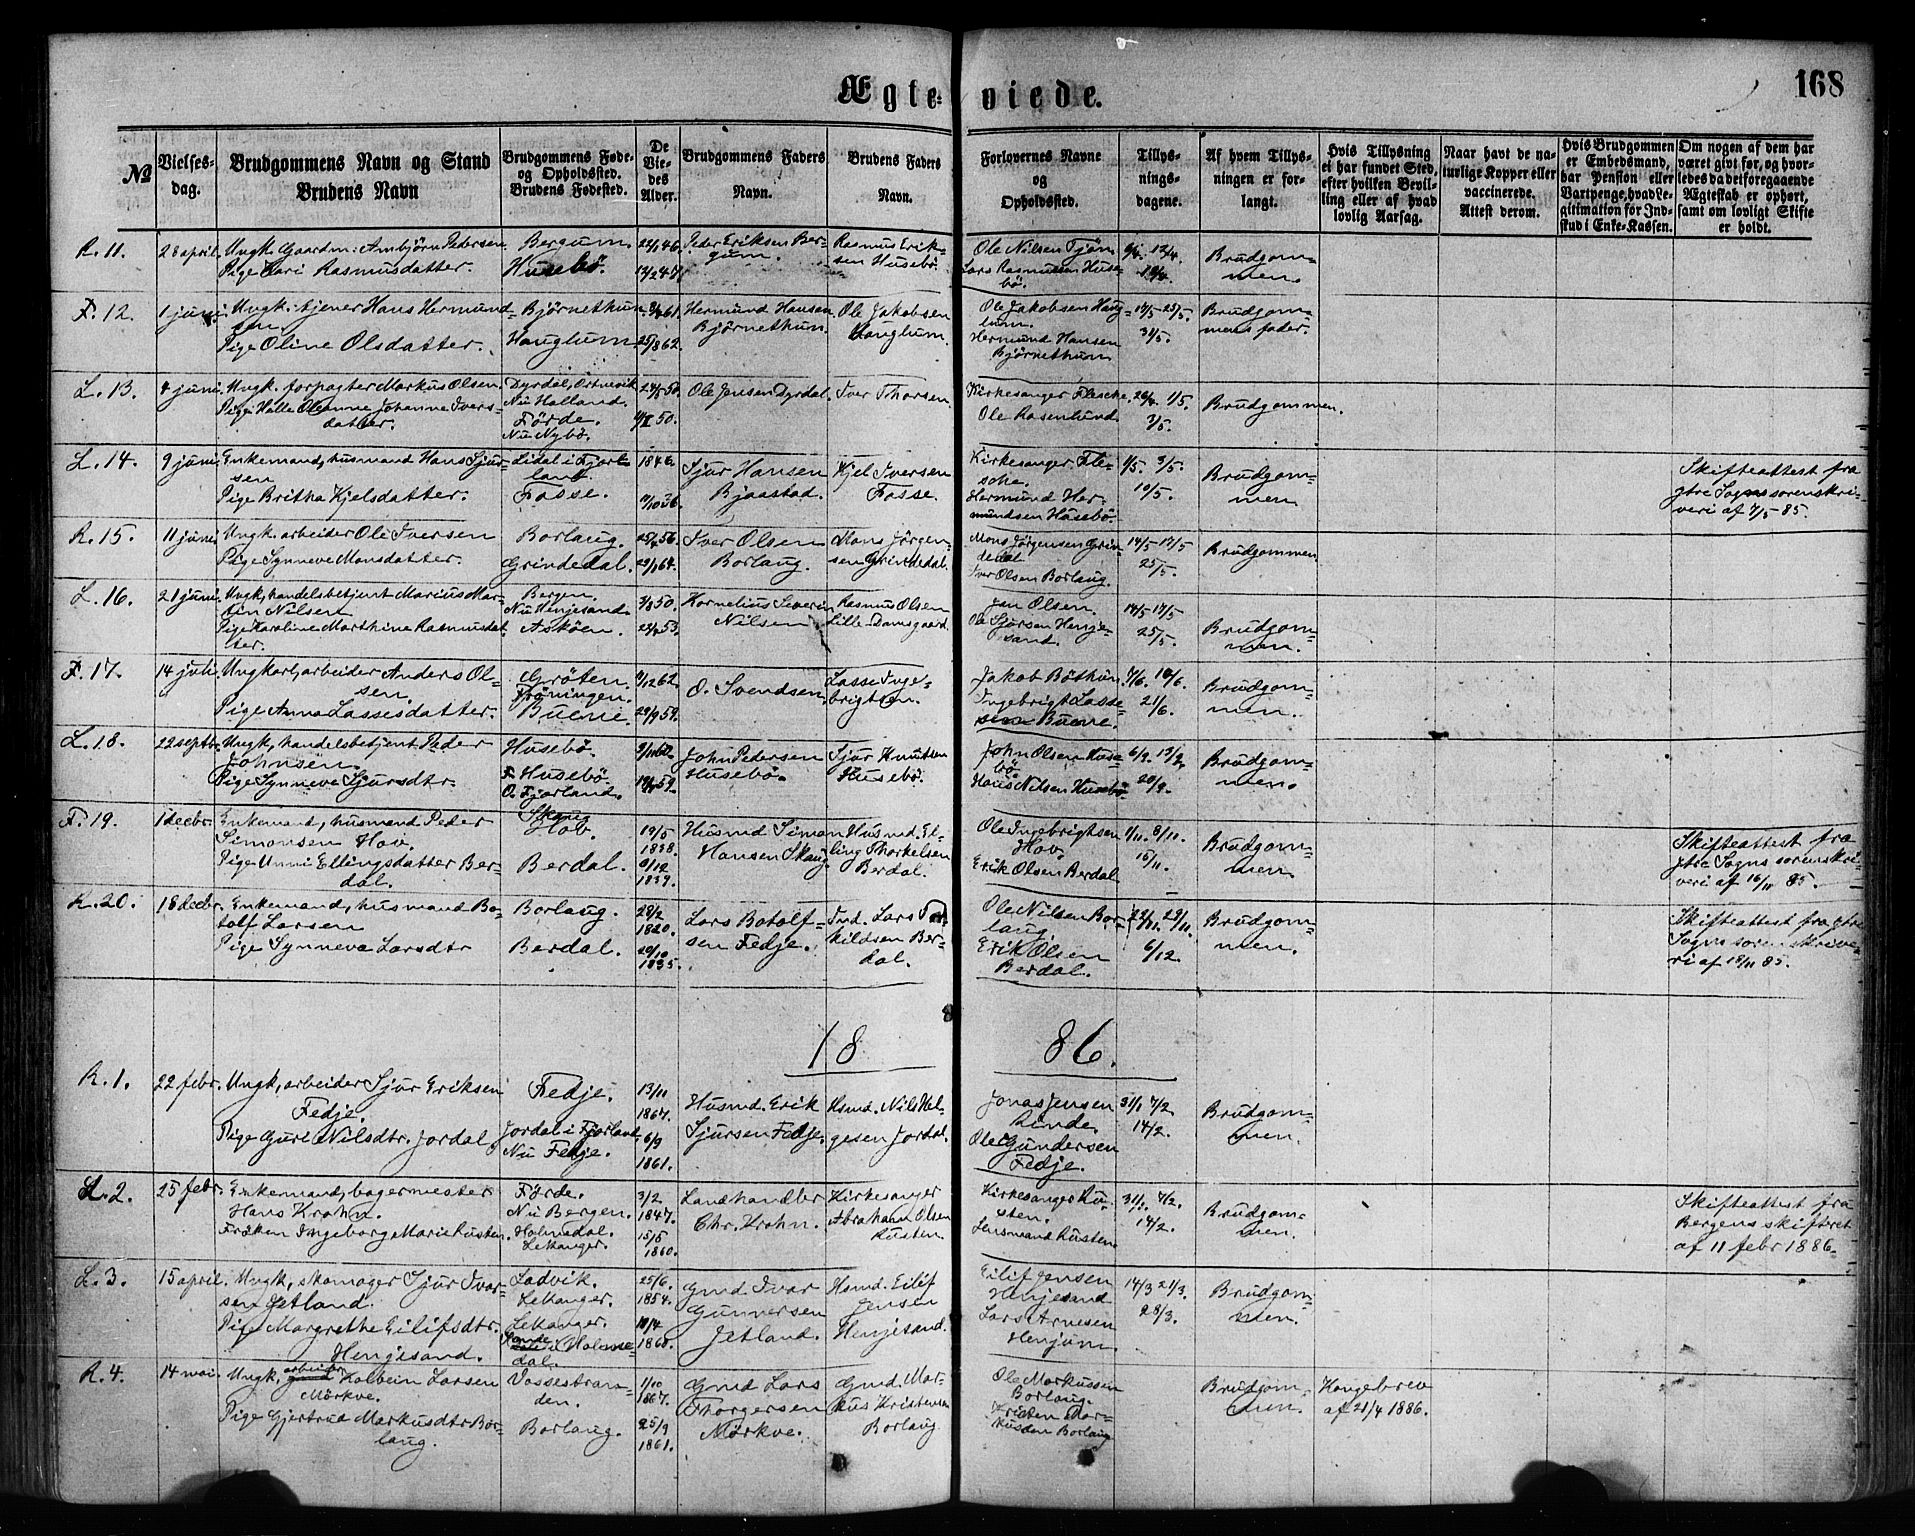 Ægte-
viede.
168
№
Vielses-
dag.
Brudgommens Navn og Stand
Brudens Navn
Brudgommens Føde-
og Opholdssted.
Brudens Fødested.
De
Vie-
des
Alder.
Brudgommens Faders
Navn.
Brudens Faders
Navn.
Forlovernes Navne
og
Opholdssted.
Tillys-
nings-
dagene.
Af hvem Tillys-
ningen er for-
langt.
Hvis Tillysning
ei har fundet Sted,
efter hvilken Bevil-
ling eller af hvad
lovlig Aarsag.
Naar havt de na-
turlige Kopper eller
vaccinerede.
Attest derom.
Hvis Brudgommen
er Embedsmand,
har Pension eller
Vartpenge, hvad Le-
gitimation for Ind-
skud i Enke-Kassen.
Om nogen af dem har
været givt før, og hvor-
ledes da det foregaaende
Ægteskab er ophørt,
samt om lovligt Skifte
er holdt.
R. 11.
28 april.
Ungk. Gaardm: Ambjørn Pedersen
Pige Kari Rasmusdatter.
Bergum.
Husebö.
22/1 46.
13/2 47.
Peder Eriksen Ber-
gum.
Rasmus Erik-
sen Husebö.
Ole Nilsen Tjøn
Lars Rasmussen Huse-
bö.
12/4.
19/4.
Brudgom-
men.
F. 12.
1 juni.
Ungk: tjener Hans Hermund-
sen
Pige Oline Olsdatter.
Bjørnethun
Hauglum
25/8 62.
Hermund Hansen
Bjørnethun.
Ole Jakobsen
Hauglum.
Ole Jakobsen Haug-
lum.
Hermund Hansen
Bjørnethum
17/5 - 25/5.
31/5.
Brudgom-
mens fader.
L. 13.
4 juni.
Ungk. forpagter Markus Olsen.
Pige Halle Oleanne Johanne Ivers-
datter.
Dyrdal, Ortnevik
Nu Halland.
Förde.
Nu Nybö.
24/5 50.
Ole Jensen Dyrdal.
Iver Thorsen.
Kirkesanger Flesche
Ole Rosenlund
26/4. 1/5.
3/5.
Brudgommen.
L. 14.
9 juni.
Enkemand, husmand Hans Sjur-
sen
Pige Britha Kjelsdatter.
Lidal i Fjær-
land.
Fosse.
1846.
11/10 36.
Sjur Hansen
Bjaastad.
Kjel Iversen
Fosse.
Kirkesanger Fle-
sche.
Hermund Her-
mundsen Husebö.
1/5. 3/5.
10/5.
Brudgom-
men.
Skifteattest fra
ytre Sogns sorenskri-
veri af 7/5 85.
R. 15.
11 juni.
Ungk. arbeider Ole Iversen
Pige Synneve Monsdatter.
Borlaug.
Grindedal.
29/1 64.
Iver Olsen
Borlaug.
Mons Jörgen-
sen Grindedal.
Mons Jörgensen Grin-
dedal
Iver Olsen Borlaug.
14/5 - 17/5
25/5.
Brudgommen
L. 16.
21 juni.
Ungk, handelsbetjent Marius Mar-
tin Nilsen
Pige Karoline Marthine Rasmusdat-
ter.
Bergen.
Nu Henjesand.
Asköen.
3/8 50.
Kornelius Severin
Nilsen
Rasmus Olsen
Lille-Damsgaard.
Jan Olsen.
Ole Sjursen Henje-
sand.
14/5 17/5
25/5.
Brudgom-
men.
F. 17.
14 juli.
Ungkarl, arbeider Anders Ol-
sen
Pige Anna Lassesdatter.
Gröten
Fröningen.
Buene.
11/12 62.
29/9 59.
O. Svendsen.
Lasse Inge-
brigtsen.
Jakob Böthun
Ingebrigt Lasse-
sen Buene.
7/6. 14/6.
21/6.
Brudgom-
men.
L. 18.
22 septbr.
Ungk, handelsbetjent Peder
Johnsen.
Pige Synneve Sjursdtr.
Husebö.
F. Husebö.
O. Fjærland.
John Pedersen
Husebö.
Sjur Knutsen
Husebö.
John Olsen Huse-
bö.
Hans Nilsen Husebö
6/9. 13/9.
20/9.
Brudgom-
men.
F. 19.
1 decbr.
Enkemand, husmand Peder
Simonsen Hov
Pige Unni Ellingsdatter Ber-
dal.
Skaug
Hov.
Berdal.
19/5
1838.
9/12
1839.
Husmd Simon
Hansen Skaug.
Husmd. El-
ling Thorkelsen
Berdal.
Ole Ingebrigtsen
Hov.
Erik Olsen Berdal
1/11. 8/11.
15/11.
Brudgom-
men.
Skifteattest fra
ytre Sogns sorenskri-
veri af 16/11 85.
R. 20.
18 decbr.
Enkemand, husmand Bo-
tolf Larsen
Pige Synneva Larsdtr
Borlaug.
Berdal.
29/2
1820.
20/10
1835.
Lars Botolf-
sen Fedje.
Ind. Lars Tor-
kildsen Ber-
dal.
Ole Nilsen Bor-
laug.
Erik Olsen
Berdal.
22/11. 29/11.
6/12.
Brudgom-
men.
Skifteattest fra ytre
Sogns sorenskrive-
ri af 18/11 85.
18
86.
R. 1.
22 febr.
Ungk, arbeider Sjur Eriksen
Fedje.
Pige Guri Nilsdtr. Jordal
Fedje.
Jordal i Fjærland
Nu Fedje.
13/11
1867.
6/9
1861.
Husmd. Erik
Sjursen Fedje.
Hsmd. Nils Hel-
gesen Jordal.
Jonas Jensen
Linde.
Ole Gundersen
Fedje.
31/1 7/2.
14/2.
Brudgom-
men.
L. 2.
25 febr.
Enkemand, bagermester
Hans Krohn.
Fröken Ingeborg Marie Rusten
Förde.
Nu Bergen.
Holmedal.
Lekanger.
3/2
1847.
15/5
1860.
Landhandler
Chr. Krohn.
Kirkesanger
Abraham Olsen
Rusten
Kirkesanger Ru-
sten.
Lensmand Rusten
31/1. 7/2.
14/2.
Brudgom-
men.
Skifteattest fra
Bergens skifteret
af 11 febr 1886.
L. 3.
15 april.
Ungk, skomager Sjur Ivar-
sen Jetland.
Pige Margrethe Eilifsdtr.
Henjesand.
Ladvik.
Lekanger.
Lekanger.
i Holme-
dal.
25/6.
1854.
10/4
1860.
Gmd. Ivar
Gunnersen
Jetland.
Hsmd. Eilif
Jensen
Henjesand.
Eilif Jensen
Henjesand
Lars Arnesen
Henjum
14/3 21/3.
28/3.
Brudgom-
men.
R. 4.
14 mai.
Ungk, arbeider Kolbein Larsen
Mörkve.
Pige Gjertrud Markusdtr Bor-
laug.
Vossestran-
den.
Borlaug.
1/10
1867.
25/9
1861.
Gmd Lars
Thorgersen
Mörkve.
Gmd. Mar-
kus Kristensen
Borlaug
Ole Markussen
Borlaug.
Kristen Mar-
kussen Borlaug
Brudgom-
men.
Kongebrev
af 21/4 1886.